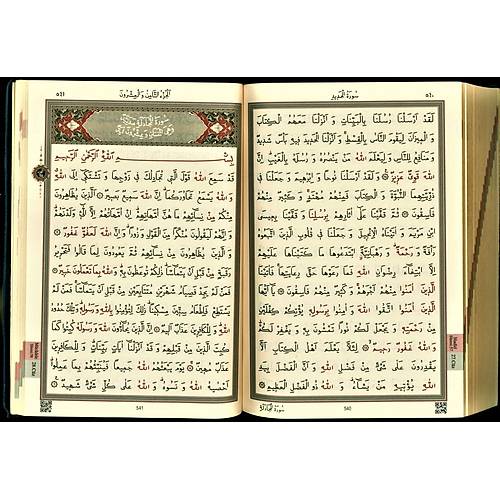 ٥٤٠
سُورَةُ الْحَدِيدِ
لَقَدْ اَرْسَلْنَا رُسُلَنَا بِالْبَيِّنَاتِ وَاَنْزَلْنَا مَعَهُمُ الْكِتَابَ
وَالْمِيزَانَ لِيَقُومَ النَّاسُ بِالْقِسْطِ وَاَنْزَلْنَا الْحَدِيدَ فِيهِ بَأْسٌ شَدِيدٌ
وَمَنَافِعُ لِلنَّاسِ وَلِيَعْلَمَ اللّٰهُ مَنْ يَنْصُرُهُ وَرُسُلَهُ بِالْغَيْبِ اِنَّ
اللّٰهَ قَوِيٌّ عَزِيزٌ وَلَقَدْ اَرْسَلْنَا نُوحًا وَاِبْرٰهِيمَ وَجَعَلْنَا فِي
ذُرِّيَّتِهِمَا النُّبُوَّةَ وَالْكِتَابَ فَمِنْهُمْ مُهْتَدٍ وَكَثِيرٌ مِنْهُمْ
فَاسِقُونَ ثُمَّ قَفَّيْنَا عَلٰى اٰثَارِهِمْ بِرُسُلِنَا وَقَفَّيْنَا بِعِيسَى
ابْنِ مَرْيَمَ وَاٰتَيْنَاهُ الْاِنْجِيلَ وَجَعَلْنَا فِي قُلُوبِ الَّذِينَ اتَّبَعُوهُ
رَأْفَةً وَرَحْمَةً وَرَهْبَانِيَّةً ابْتَدَعُوهَا مَا كَتَبْنَاهَا عَلَيْهِمْ
اِلَّا ابْتِغَاءَ رِضْوَانِ اللّٰهِ فَمَا رَعَوْهَا حَقَّ رِعَايَتِهَا فَاٰتَيْنَا
الَّذِينَ اٰمَنُوا مِنْهُمْ اَجْرَهُمْ وَكَثِيرٌ مِنْهُمْ فَاسِقُونَ يَا اَيُّهَا
الَّذِينَ اٰمَنُوا اتَّقُوا اللّٰهَ وَاٰمِنُوا بِرَسُولِهِ يُؤْتِكُمْ كِفْلَيْنِ
مِنْ رَحْمَتِهِ وَيَجْعَلْ لَكُمْ نُورًا تَمْشُونَ بِهِ وَيَغْفِرْ لَكُمْ
وَاللّٰهُ غَفُورٌ رَحِيمٌ لِئَلَّا يَعْلَمَ اَهْلُ الْكِتَابِ اَلَّا
يَقْدِرُونَ عَلٰى شَيْءٍ مِنْ فَضْلِ اللّٰهِ وَاَنَّ الْفَضْلَ بِيَدِ
اللّٰهِ يُؤْتِيهِ مَنْ يَشَاءُ وَاللّٰهُ ذُو الْفَضْلِ الْعَظِيمِ
540
اَلْجُزْءُ الثَّامِنُ وَالْعِشْرُونَ
٥٤١
بِسْمِ اللّٰهِ الرَّحْمٰنِ الرَّحِيمِ
قَدْ سَمِعَ اللّٰهُ قَوْلَ الَّتِي تُجَادِلُكَ فِي زَوْجِهَا وَتَشْتَكِي اِلَى اللّٰهِ
وَاللّٰهُ يَسْمَعُ تَحَاوُرَكُمَا اِنَّ اللّٰهَ سَمِيعٌ بَصِيرٌ اَلَّذِينَ يُظَاهِرُونَ
مِنْكُمْ مِنْ نِسَائِهِمْ مَا هُنَّ اُمَّهَاتِهِمْ اِنْ اُمَّهَاتُهُمْ اِلَّا الّٰٓئِي وَلَدْنَهُمْ
وَاِنَّهُمْ لَيَقُولُونَ مُنْكَرًا مِنَ الْقَوْلِ وَزُورًا وَاِنَّ اللّٰهَ لَعَفُوٌّ غَفُورٌ
وَالَّذِينَ يُظَاهِرُونَ مِنْ نِسَائِهِمْ ثُمَّ يَعُودُونَ لِمَا قَالُوا فَتَحْرِيرُ
رَقَبَةٍ مِنْ قَبْلِ اَنْ يَتَمَاسَّا ذٰلِكُمْ تُوعَظُونَ بِهِ وَاللّٰهُ بِمَا تَعْمَلُونَ خَبِيرٌ
فَمَنْ لَمْ يَجِدْ فَصِيَامُ شَهْرَيْنِ مُتَتَابِعَيْنِ مِنْ قَبْلِ اَنْ يَتَمَاسَّا فَمَنْ لَمْ
يَسْتَطِعْ فَاِطْعَامُ سِتِّينَ مِسْكِينًا ذٰلِكَ لِتُؤْمِنُوا بِاللّٰهِ وَرَسُولِهِ وَتِلْكَ حُدُودُ
اللّٰهِ وَلِلْكَافِرِينَ عَذَابٌ اَلِيمٌ اِنَّ الَّذِينَ يُحَادُّونَ اللّٰهَ وَرَسُولَهُ كُبِتُوا كَمَا
كُبِتَ الَّذِينَ مِنْ قَبْلِهِمْ وَقَدْ اَنْزَلْنَا اٰيَاتٍ بَيِّنَاتٍ وَلِلْكَافِرِينَ
عَذَابٌ مُهِينٌ يَوْمَ يَبْعَثُهُمُ اللّٰهُ جَمِيعًا فَيُنَبِّئُهُمْ بِمَا عَمِلُوا
اَحْصٰيهُ اللّٰهُ وَنَسُوهُ وَاللّٰهُ عَلٰى كُلِّ شَيْءٍ شَهِيدٌ
541